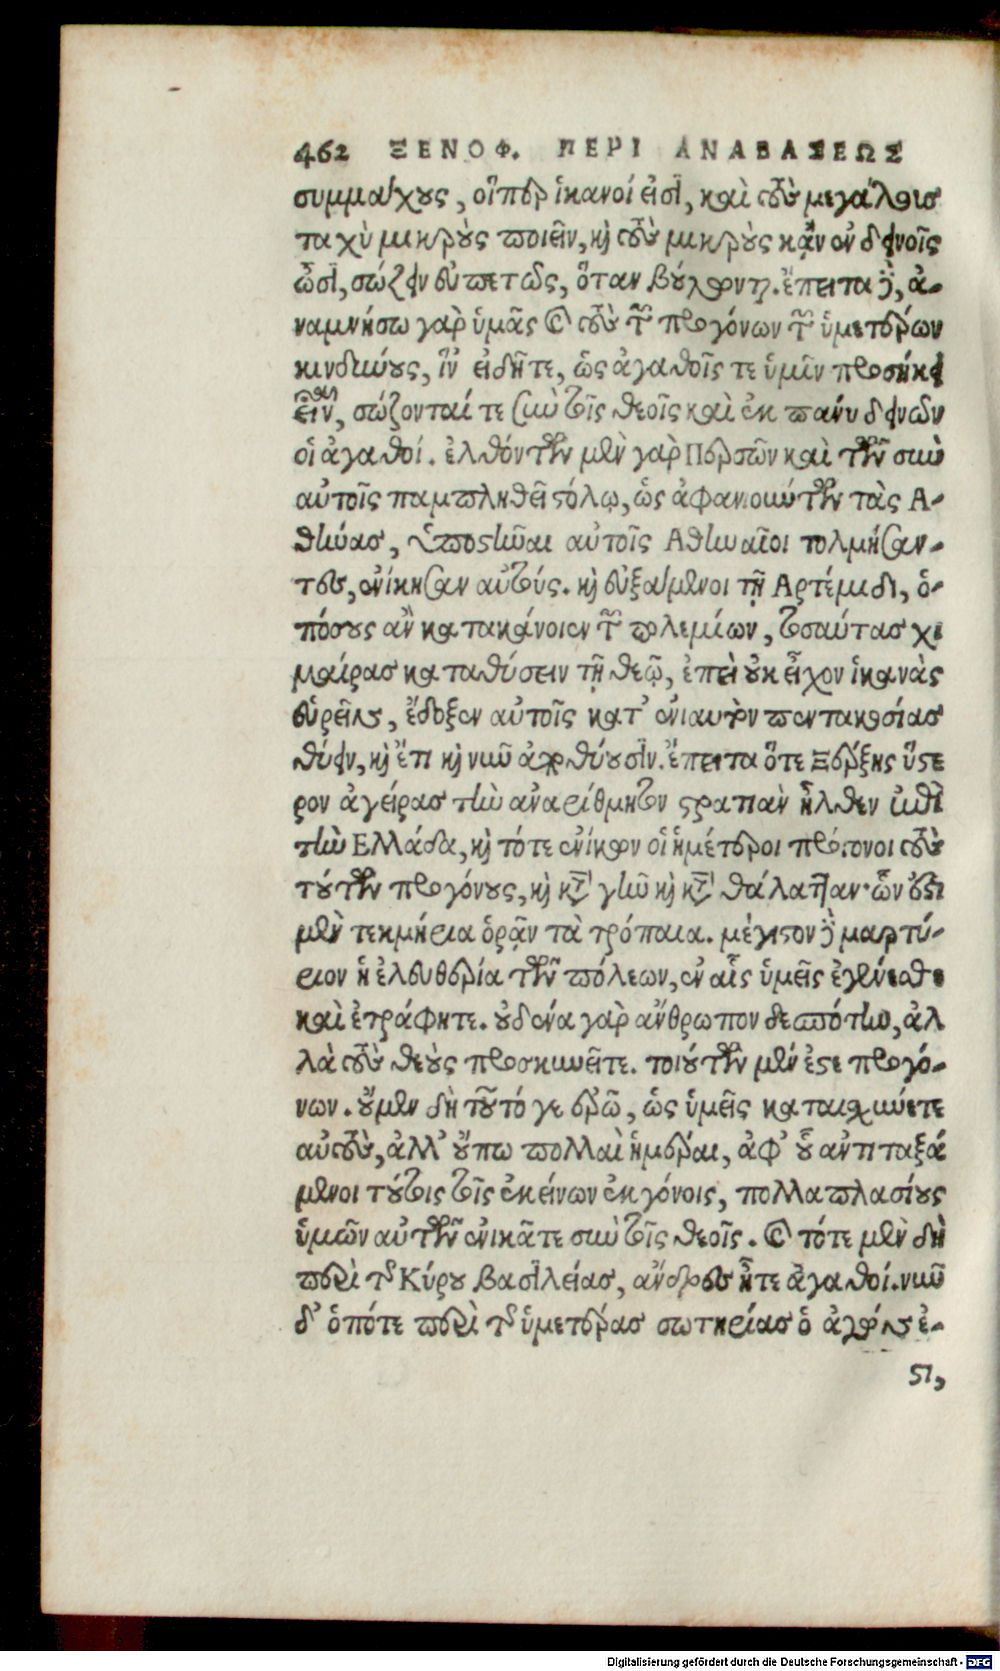 462 ΞΕΝΟΦ. ΠΕΡΙ ΑΝΑΒΑΣΕΩΣ
συμμάχους, οἵπερ ἱκανοί εἰσὶ, καὶ τοὺς μεγάλους
ταχὺ μικροὺς ποιεῖν, καὶ τοὺς μικροὺς κᾂν ἐν δεινοῖς
ὦσι, σώζειν εὐπετῶς, ὅταν βούλωνται. ἔπειτα δὲ, ἀ-
ναμνήσω γὰρ ὑμᾶς καὶ τοὺς τῶν προγόνων τῶν ὑμετέρων
κινδύνους, ἵν εἰδῆτε, ὡς ἀγαθοῖς τε ὑμῖν προσήκει
εἶναι, σώζονταί τε σὺν τοῖς θεοῖς καὶ ἐκ πάνυ δεινῶν
οἱ ἀγαθοί. ἐλθόντων μὲν γὰρ Περσῶν καὶ τῶν σὺν
αὐτοῖς παμπληθεῖ στόλῳ, ὡς ἀφανιούντων τὰς Α-
θήνας, ὑποστῆναι αὐτοῖς Αθηναῖοι τολμήσαν-
τες, ἐνίκησαν αὐτούς. καὶ εὐξάμενοι τῇ Αρτέμιδι, ὁ-
πόσους ἂν κατακάνοιεν τῶν πολεμίων, τοσαύτας χι
μαίρας καταθύσειν τῇ θεῷ, ἐπεὶ οὐκ εἶχον ἱκανὰς
εὑρεῖν, ἔδοξεν αὐτοῖς κατ' ἐνιαυτὸν πεντακοσίας
θύειν, καὶ ἔτι καὶ νῦν ἀποθύουσιν. ἔπειτα ὅτε Ξέρξης ὕστε
ρον ἀγείρας τὴν ἀναρίθμητον στρατιὰν ἦλθεν ἐπὶ
τὴν Ελλάδα, καὶ τότε ἐνίκων οἱ ἡμέτεροι πρόγονοι τοὺς
τούτων προγόνους, καὶ κατὰ γῆν καὶ κατὰ θάλατταν· ὧν ἔστι
μὲν τεκμήρια ὁρᾷν τὰ τρόπαια. μέγιστον δὲ μαρτύ-
ριον ἡ ἐλευθερία τῶν πόλεων, ἐν αἷς ὑμεῖς ἐγένεσθε
καὶ ἐτράφητε. οὐδένα γὰρ ἄνθρωπον δεσπότην, ἀλ
λὰ τοὺς θεοὺς προσκυνεῖτε. τοιούτων μέν ἐστε προγό-
νων. οὔμεν δὴ τοῦτό γε ἐρῶ, ὡς ὑμεῖς καταισχύνετε
αὐτοὺς, ἀλλ' οὔπω πολλαὶ ἡμέραι, ἀφ' οὗ ἀντιταξά
μενοι τούτοις τοῖς ἐκείνων ἐκγόνοις, πολλαπλασίους
ὑμῶν αὐτῶν ἐνικᾶτε σὺν τοῖς θεοῖς. καὶ τότε μὲν δὴ
περὶ τῆς Κύρου βασιλείας, ἄνδρες ἦτε ἀγαθοί. νῦν
δ' ὁπότε περὶ τῆς ὑμετέρας σωτηρίας ὁ ἀγών ἐ-
στι,
Digitalisierung gefördert durch die Deutsche Forschungsgemeinschaft - DFG